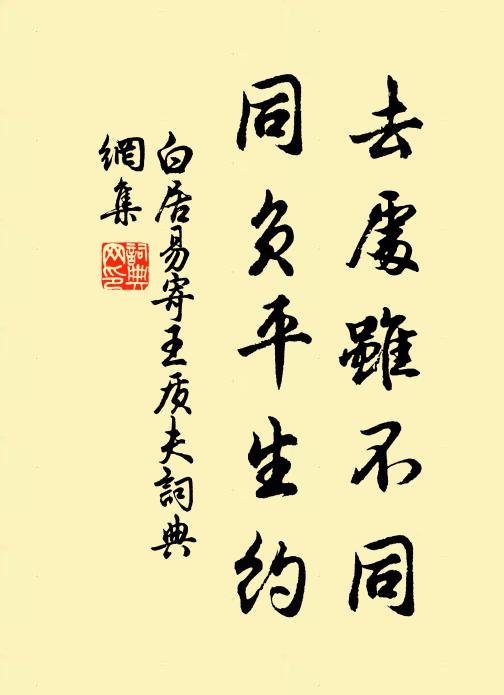 去處雖不同
同負平生約
白居易寄王质夫詞典
網集
詞典
网印